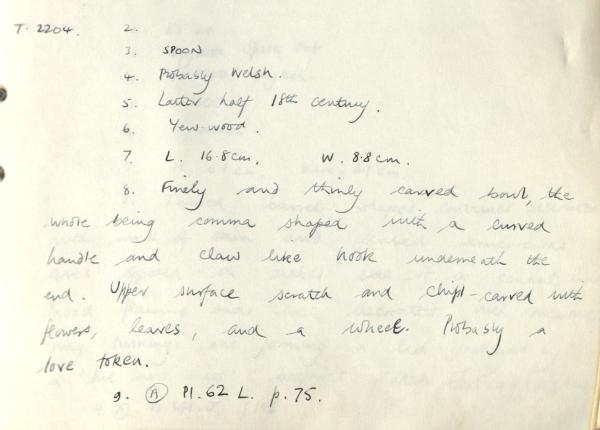 T. 2204. 2.
3. SPOON
4. Probably Welsh.
5. Latter half 18th century.
6. Yew-wood.
7. L. 16.8cm. W. 8.8cm.
8. Finely and thinly carved bowl, the
whole being comma shaped with a curved
handle and claw like hook underneath the
end. Upper surface scratch and chip-carved with
flowers, leaves, and a wheel. Probably a
love token.
9. Ⓐ Pl. 62 L. p. 75.